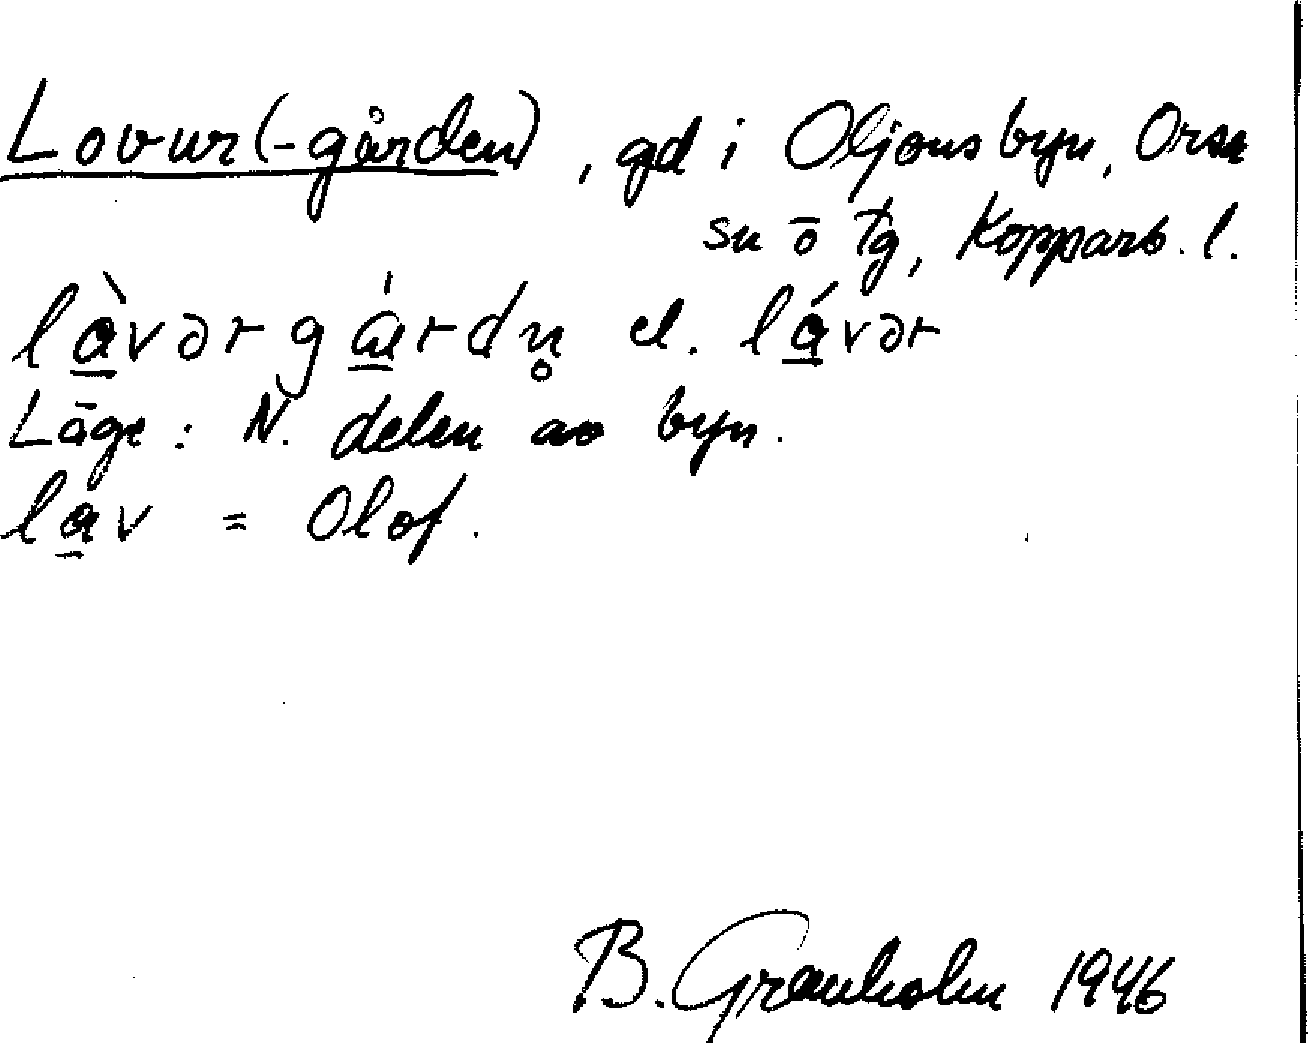 Lovur(-gården), gd i Oljonsbyn, Orsa
sn o tg, Kopparb. l.
l&#8203;àvər gárdn̥ el. lávər
Läge: N. delen av byn.
lav = Olof.
B. Granholm 1946